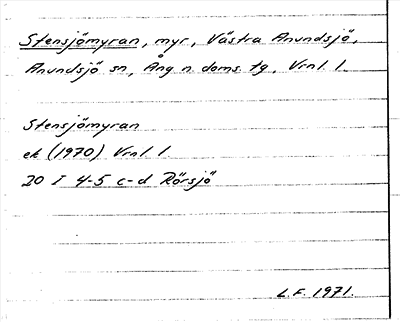 Stensjömyran, myr, Västra Anundsjö,
Anundsjö sn, Ång n. doms. tg, Vrnl. l.
Stensjömyran
ek (1970) Vrnl. l.
20 I 4-5 c-d Rörsjö
L.F. 1971.